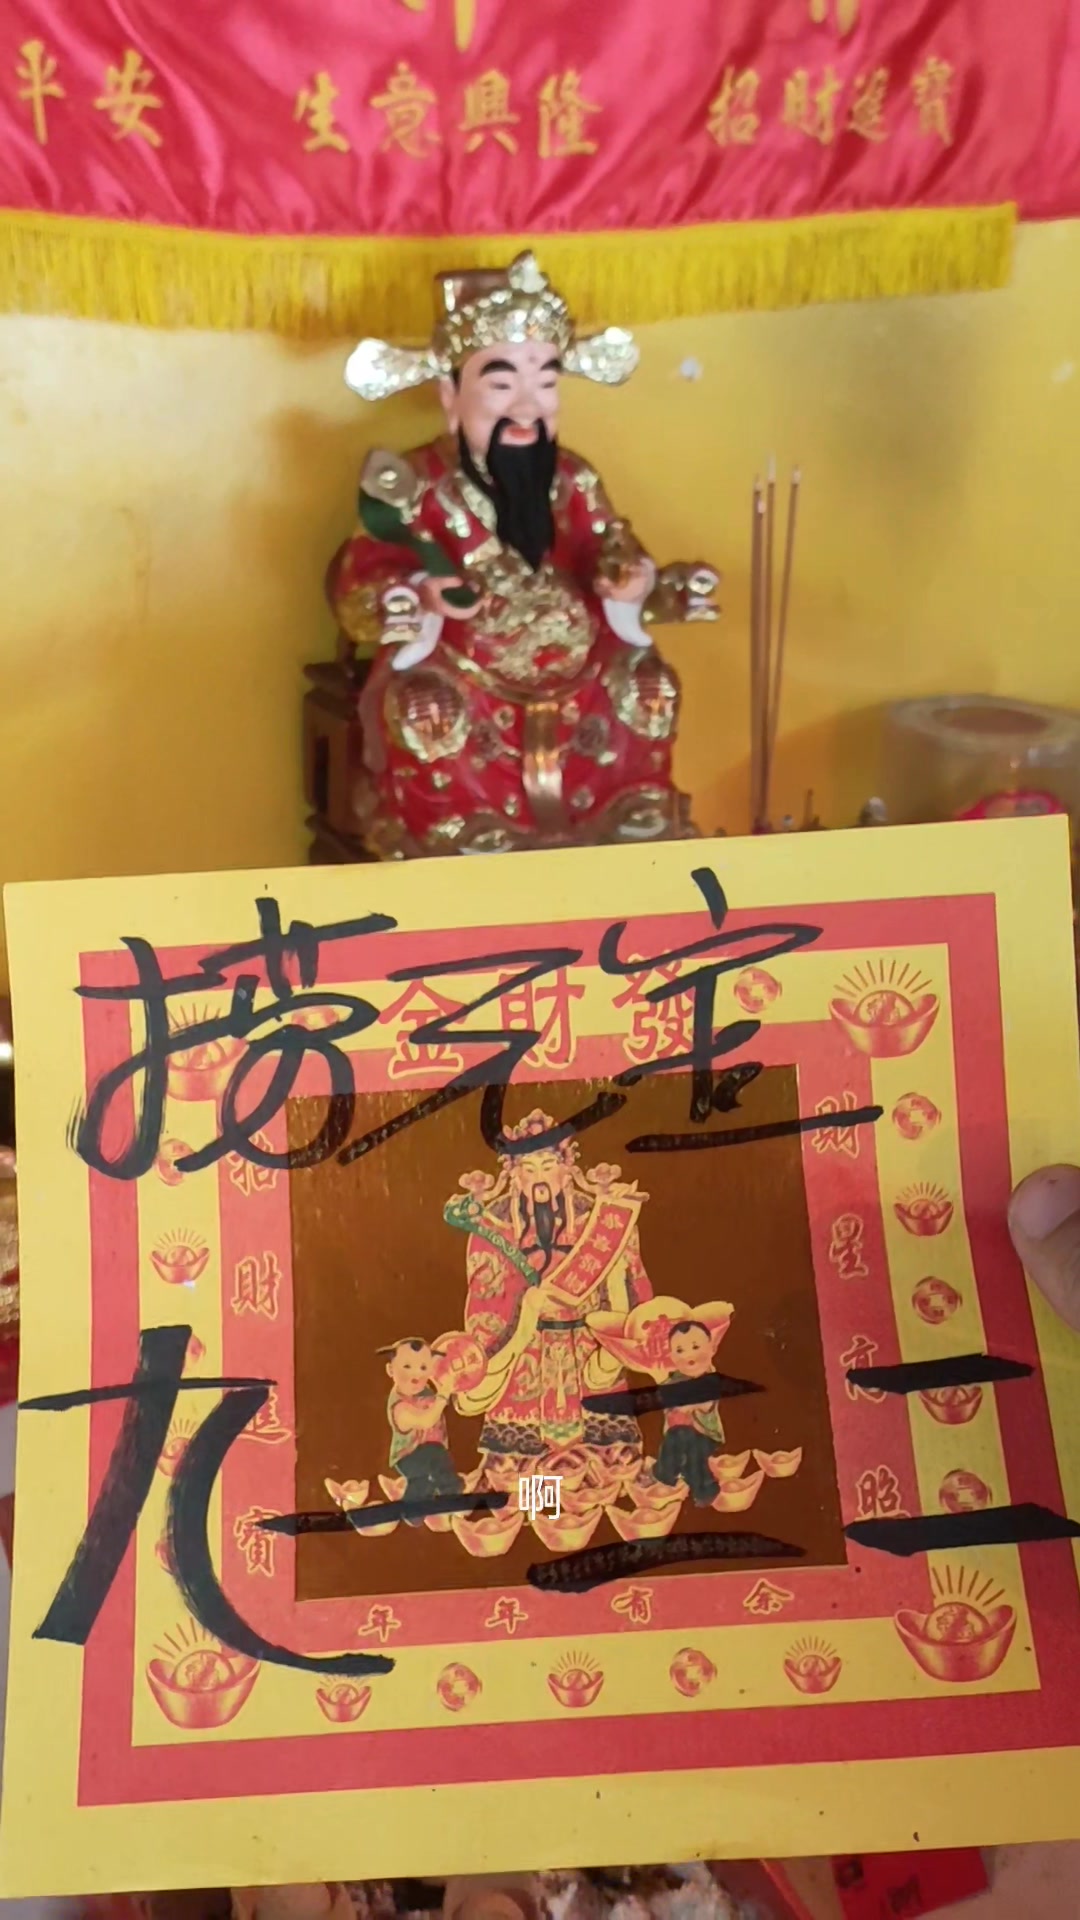 平安 生意興隆 招財進寶
捞元宝
發財金
招財進寶
財星高照
九一二二
啊
年年有余